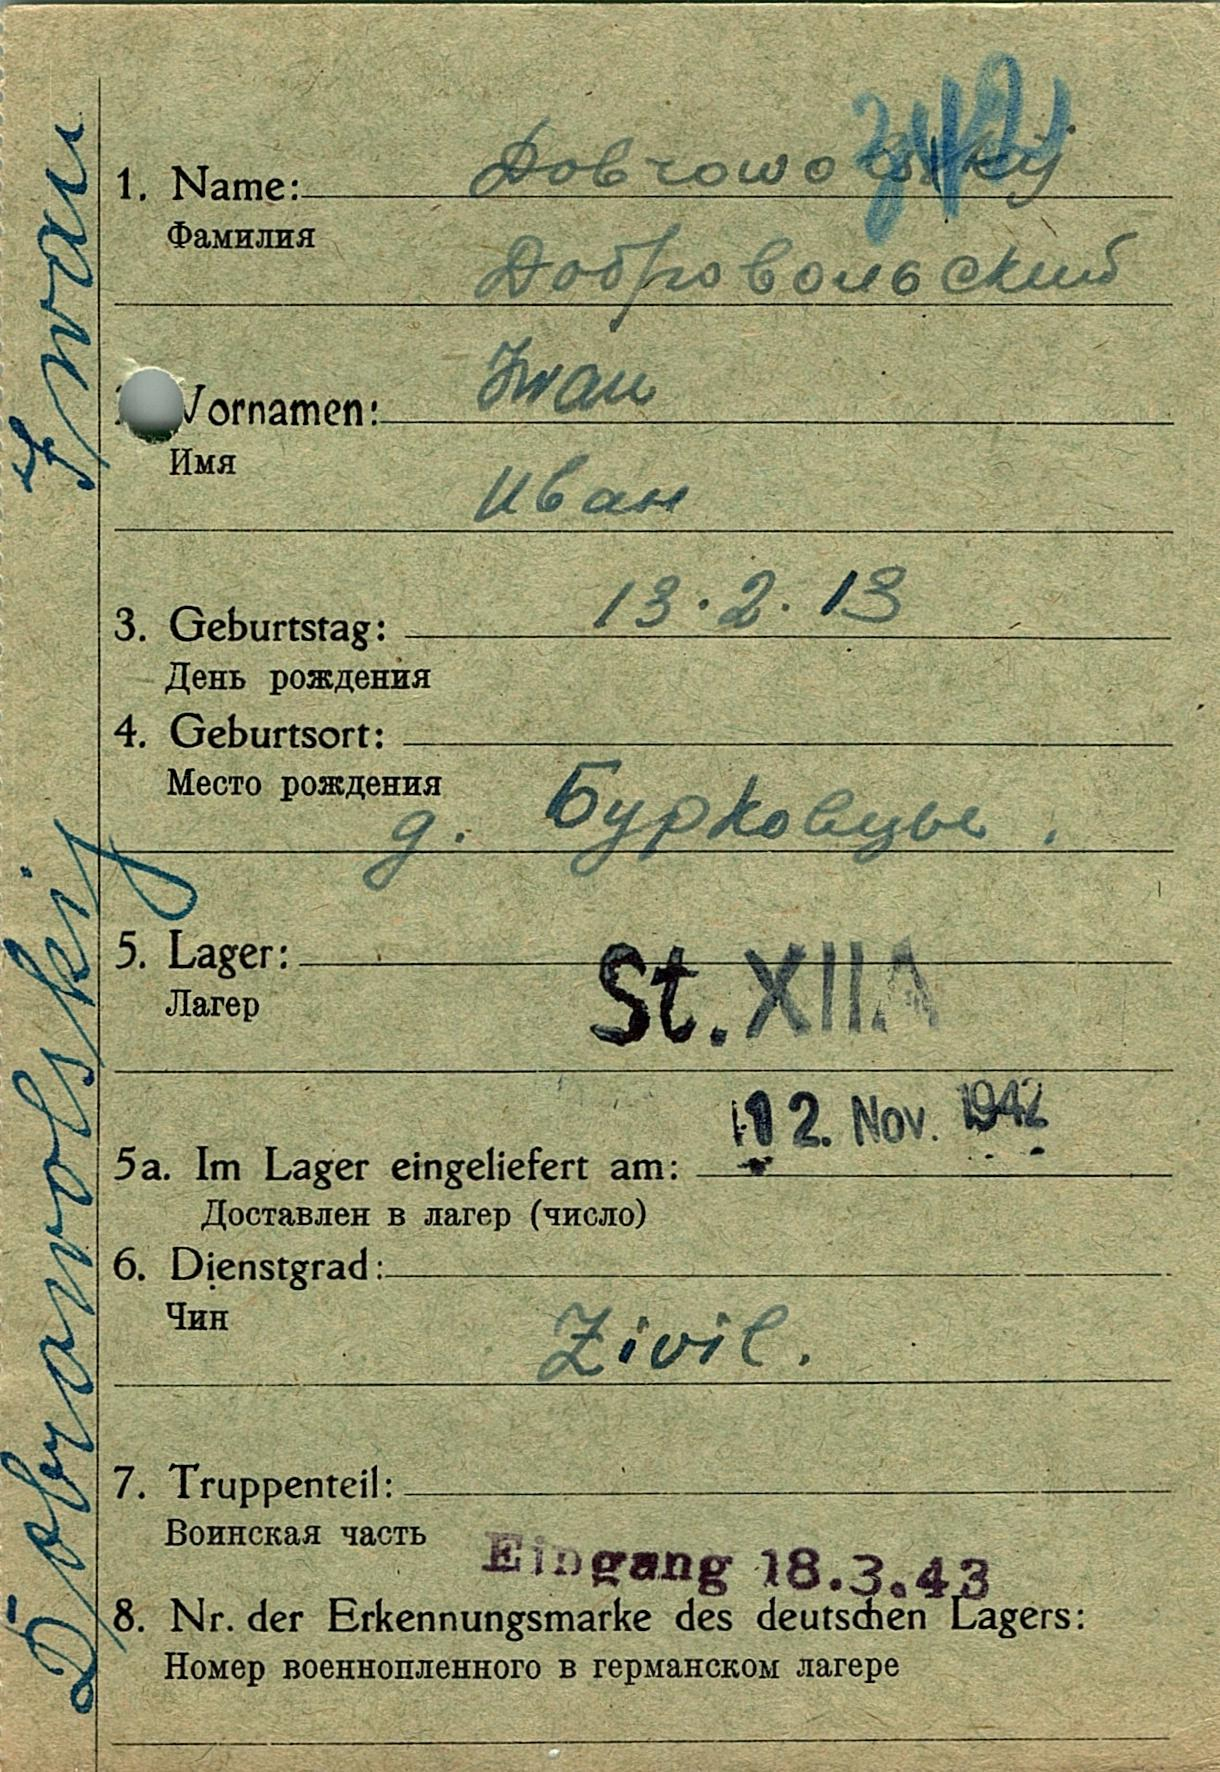 1. Name:
Фамилия
Добровольский
Vornamen: Iwan
Имя
Иван
3. Geburtstag: 13.2.13
День рождения
4. Geburtsort:
Место рождения
д. Бурковцы.
5. Lager: St. XIIA
Лагер
12. Nov. 1942
5a. Im Lager eingeliefert am:
Доставлен в лагер (число)
6. Dienstgrad:
Чин
Zivil.
7. Truppenteil:
Воинская часть
Eingang 18.3.43
8. Nr. der Erkennungsmarke des deutschen Lagers:
Номер военнопленного в германском лагере
Dobrowolskij Iwan